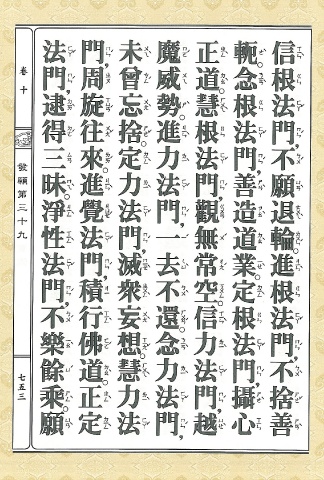 信根法門,不願退輪。進根法門,不捨善
軛。念根法門,善造道業。定根法門,攝心
正道。慧根法門,觀無常空。信力法門,越
魔威勢。進力法門,一去不還。念力法門,
未曾忘捨。定力法門,滅衆妄想。慧力法
門,周旋往來。進覺法門,積行佛道。正定
法門,逮得三昧。淨性法門,不樂餘乘。願
卷十
發願第三十九
七五三